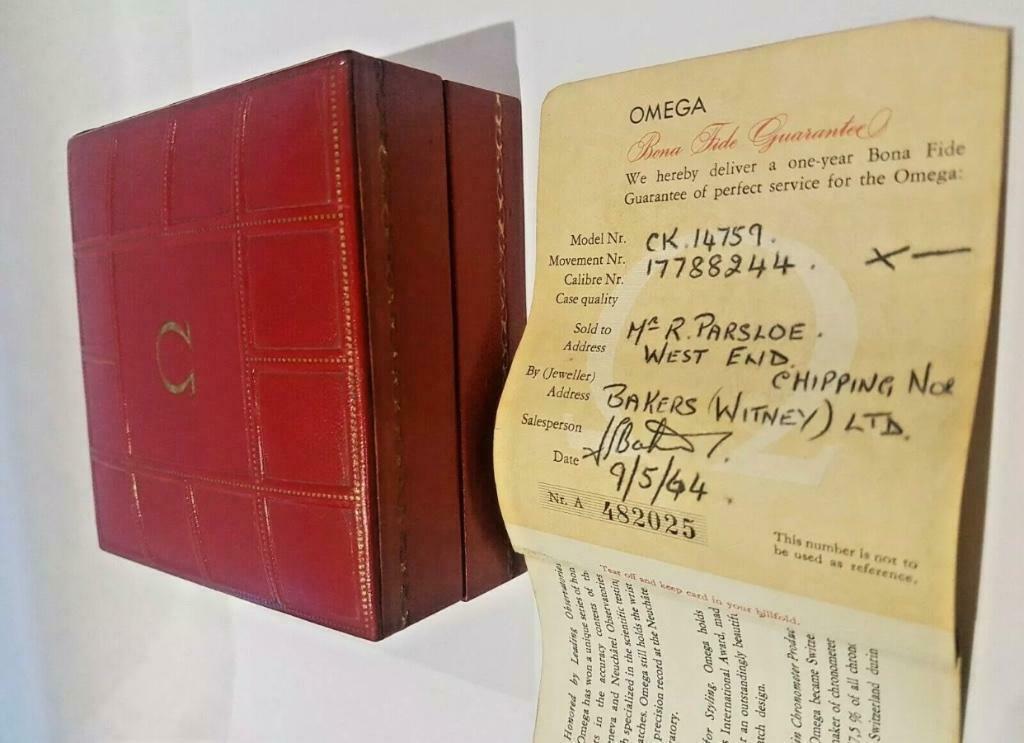 Ω
OMEGA
Bona Fide Guarantee
We hereby deliver a one-year Bona Fide
Guarantee of perfect service for the Omega:
Model Nr. CK.14759.
Movement Nr. 17788244. X —
Calibre Nr.
Case quality
Sold to Mr R. PARSLOE.
Address WEST END.
CHIPPING NOR
By (Jeweller)
Address BAKERS (WITNEY) LTD.
Salesperson
Date 9/5/64.
Nr. A 482025
This number is not to
be used as reference.
Tear off and keep card in your billfold.
Honored by Leading Observatories
Omega has won a unique series of hon
s in the accuracy contests of th
eneva and Neuchâtel Observatories
h specialized in the scientific testing
atches. Omega still holds the wrist
precision record at the Neuchâte
ratory.
for Styling. Omega holds
s International Award, mad
r an outstandingly beautif
tch design.
in Chronometer Produc
Omega became Switze
maker of chronometer
7,5 % of all chron
Switzerland durin